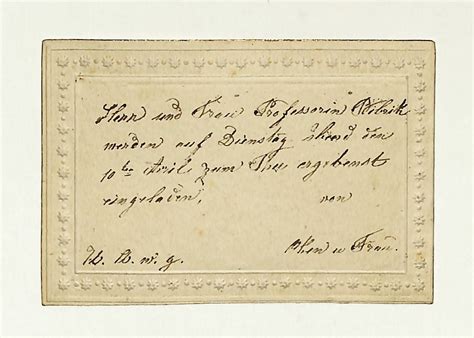 Herr und Frau Professorin
werden auf Dienstag Abend den
10ten April zum Thee ergebenst
eingeladen, von
u Frau.
U. A. w. g.